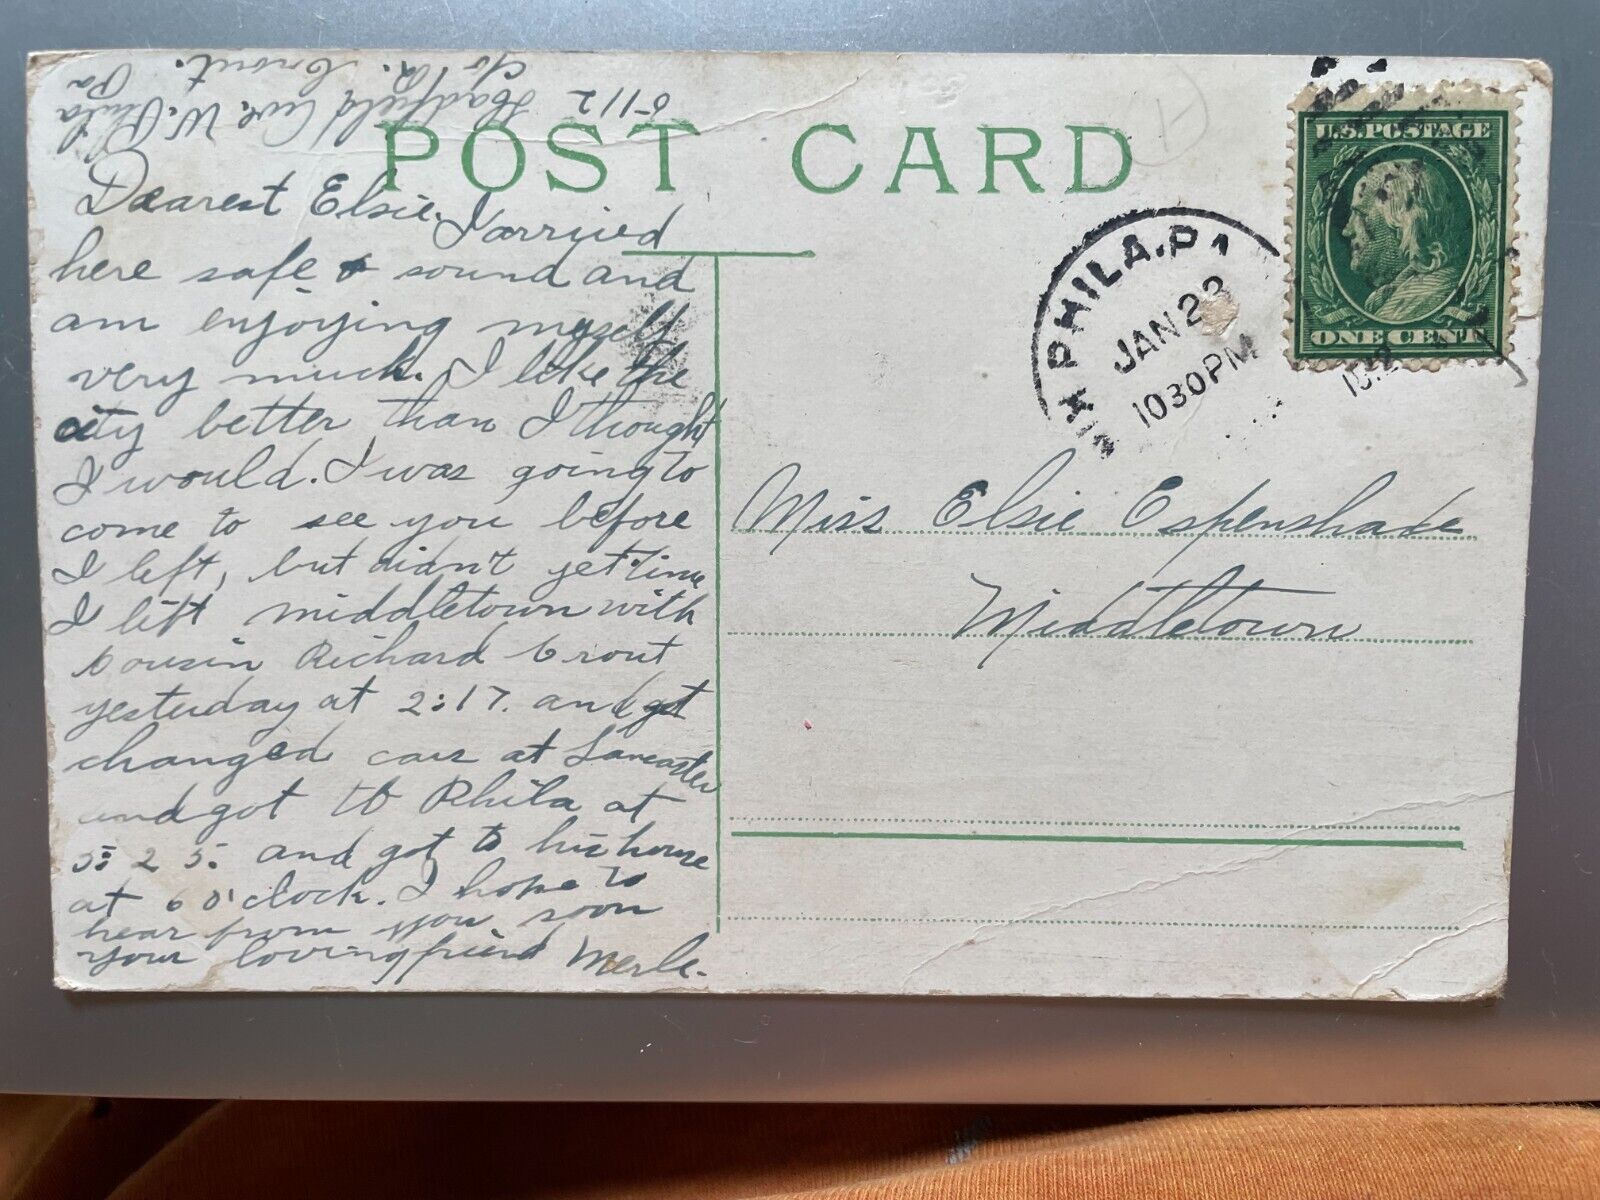 POST CARD
U.S. POSTAGE
ONE CENT
PHILA. PA
JAN 23
1030 PM
Dearest Elsie. I arrived
here safe & sound and
am enjoying myself
very much. I like the
city better than I thought
I would. I was going to
come to see you before
I left, but didn't get time
I left middletown with
Cousin Richard Crout
yesterday at 2:17. and got
changed cars at Lancaster
and got to Phila at
5:25. and got to his house
at 6 o'clock. I hope to
hear from you soon
your loving friend Merle.
Miss Elsie Espenshade
Middletown
Crout.
5112 Hadfield Ave. W. Phila
Pa